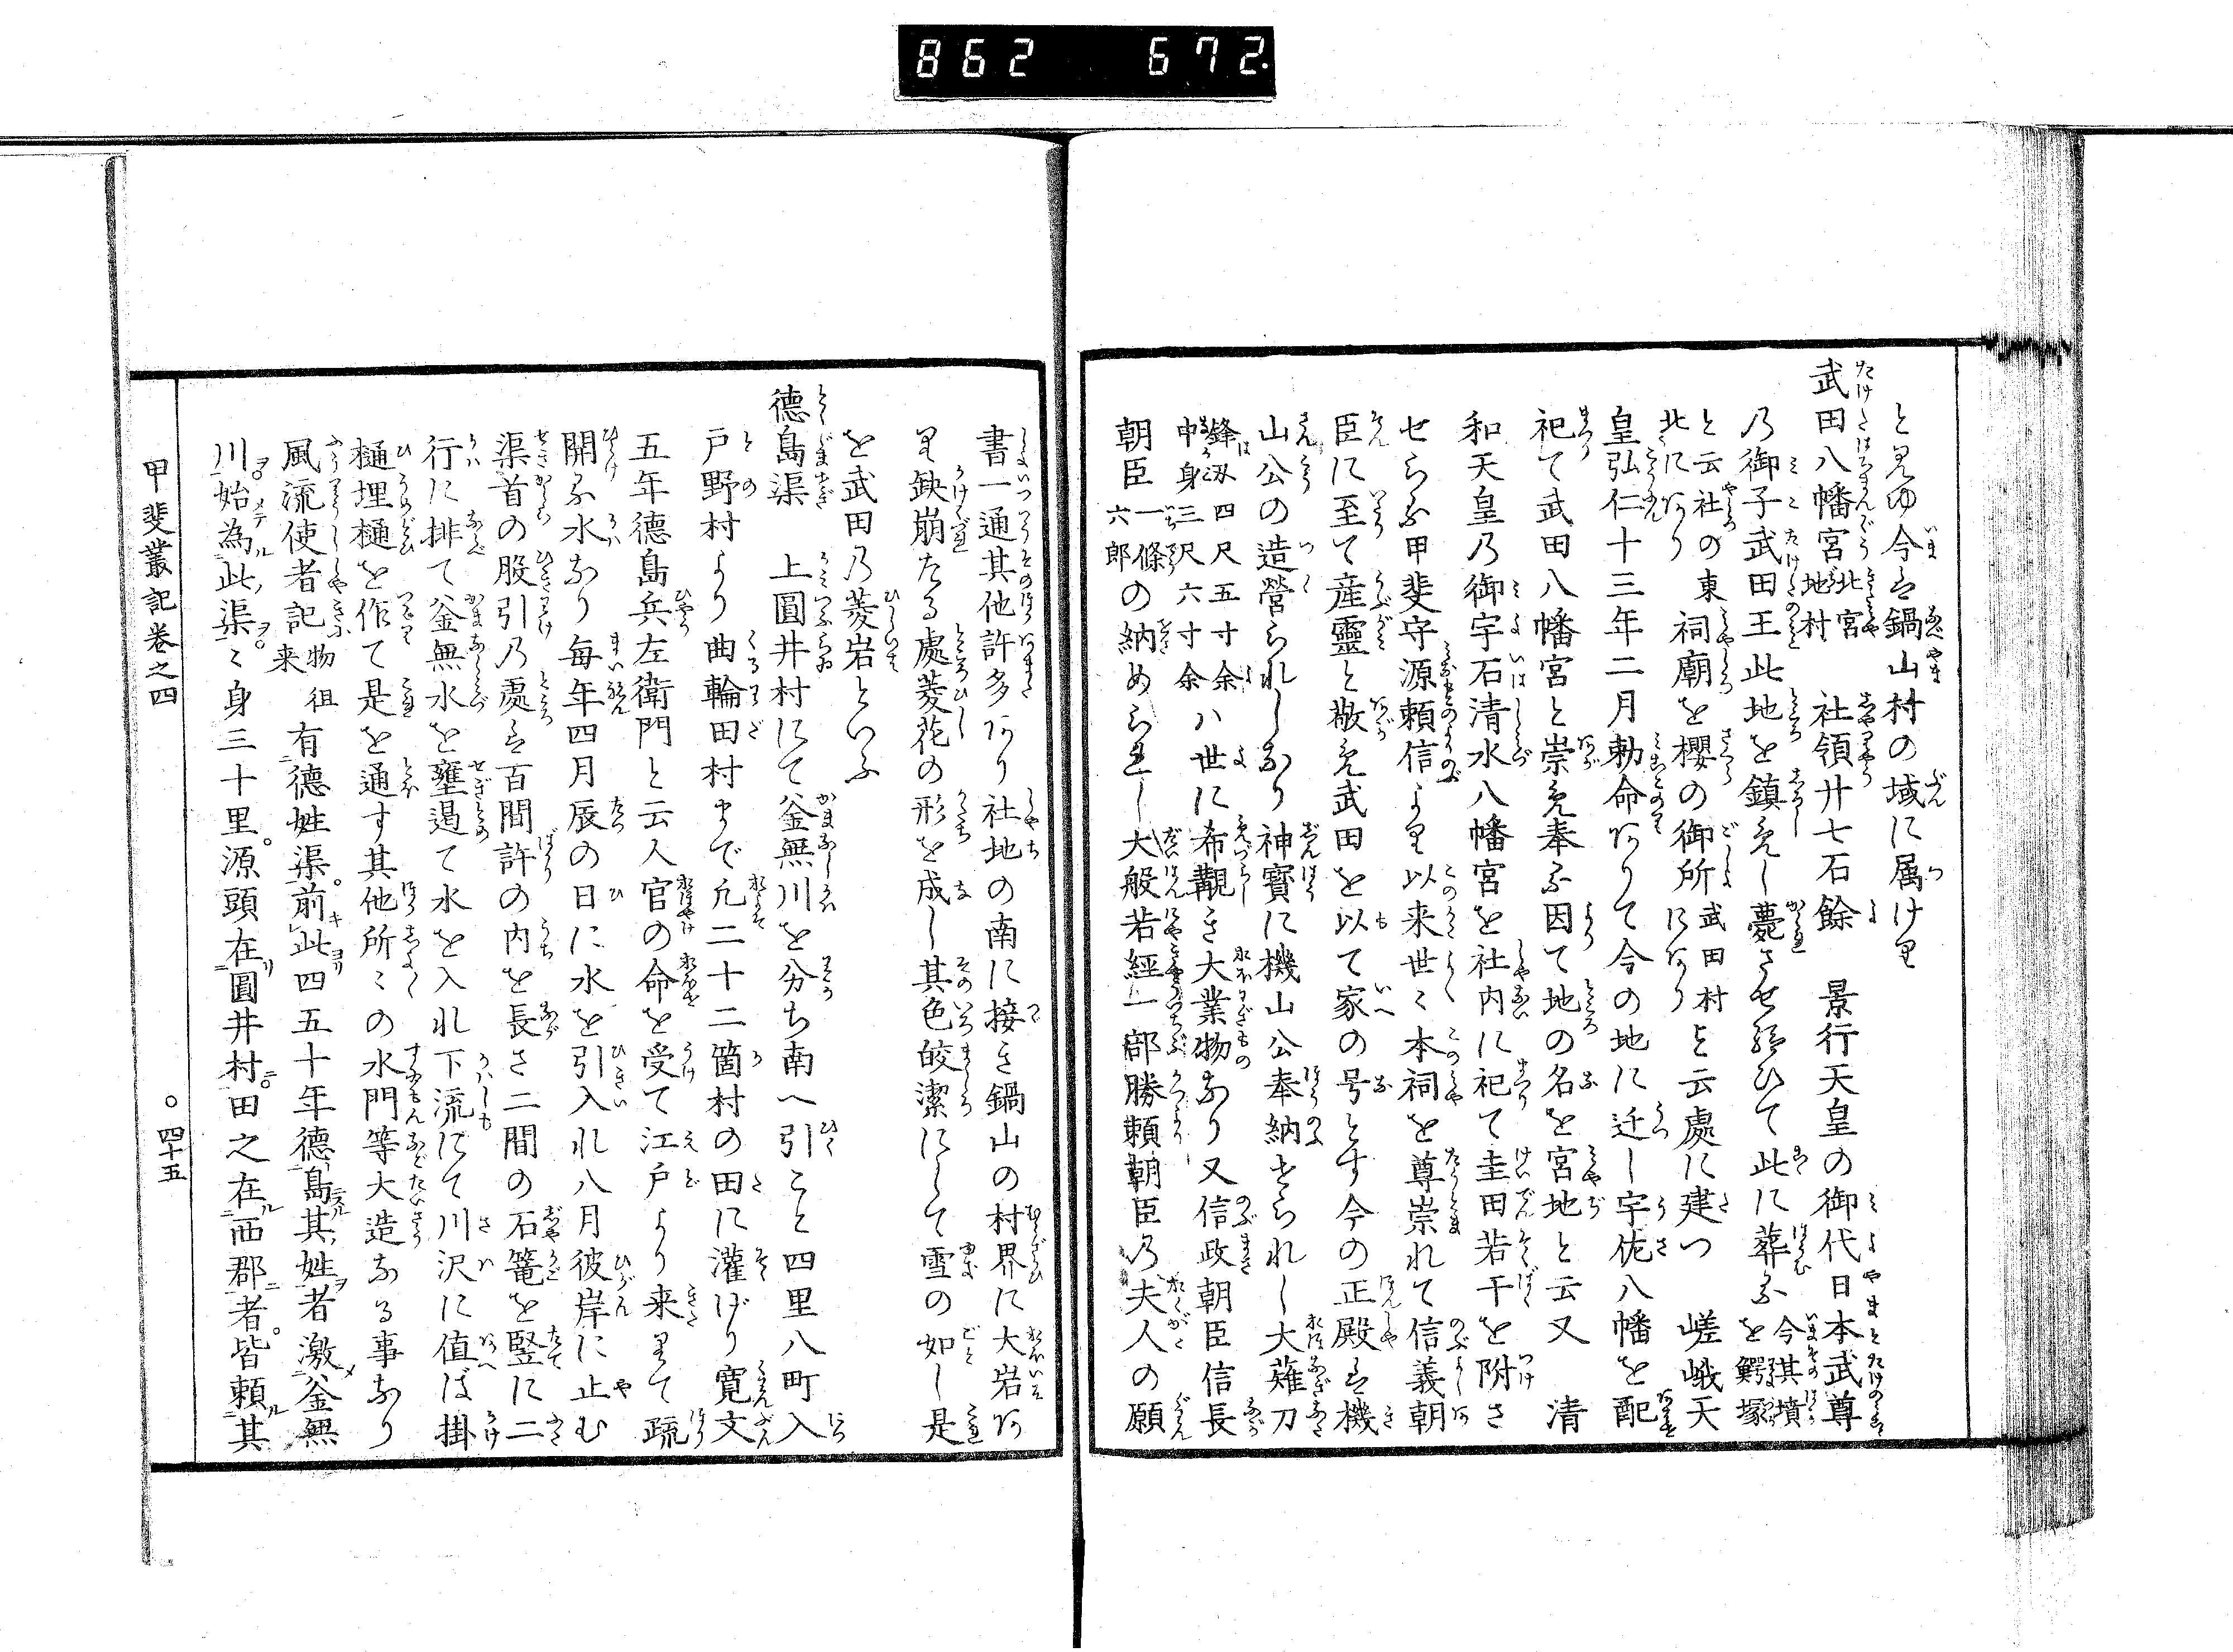 862 672.
と見ゆ今は鍋山村の域に属けり
武田八幡宮 北宮地村 社領廿七石餘 景行天皇の御代日本武尊
乃御子武田王此地を鎮め薨させ給ひて此に葬ふ 今其墳を鰐塚
と云社の東北にあり 祠廟を櫻の御所 武田村にあり と云處に建つ 嵯峨天
皇弘仁十三年二月勅命ありて今の地に迁し宇佐八幡を配
祀て武田八幡宮と崇め奉る因て地の名を宮地と云又 清
和天皇乃御宇石清水八幡宮を社内に祀て圭田若干を附さ
せらる甲斐守源頼信より以来世々本祠を尊崇れて信義朝
臣に至て産靈と敬め武田を以て家の号とす今の正殿は機
山公の造營られしなり神寳に機山公奉納せられし大薙刀
鋒刄四尺五寸余中身三尺六寸余 八世に希覯き大業物なり又信政朝臣信長
朝臣 一條六郎 の納めらはし大般若經一部勝頼朝臣乃夫人の願
書一通其他許多あり社地の南に接き鍋山の村界に大岩あ
り缺崩たる處菱花の形を成し其色皎潔にして雪の如し是
を武田乃菱岩といふ
德島渠 上圓井村にて釜無川を分ち南へ引こと四里八町入
戸野村より曲輪田村まで凢二十二箇村の田に灌げり寛文
五年德島兵左衛門と云人官の命を受て江戸より来りて疏
開る水なり毎年四月辰の日に水を引入れ八月彼岸に止む
渠首の股引乃處は百間許の内を長さ二間の石篭を竪に二
行に排て釜無水を壅遏て水を入れ下流にて川沢に値ば掛
樋埋樋を作て是を通す其他所々の水門等大造なる事なり
風流使者記 物徂来 有德姓渠前此四五十年德島其姓者激釜無
川始為此渠々身三十里源頭在圓井村田之在西郡者皆頼其
甲斐叢記卷之四
○四十五